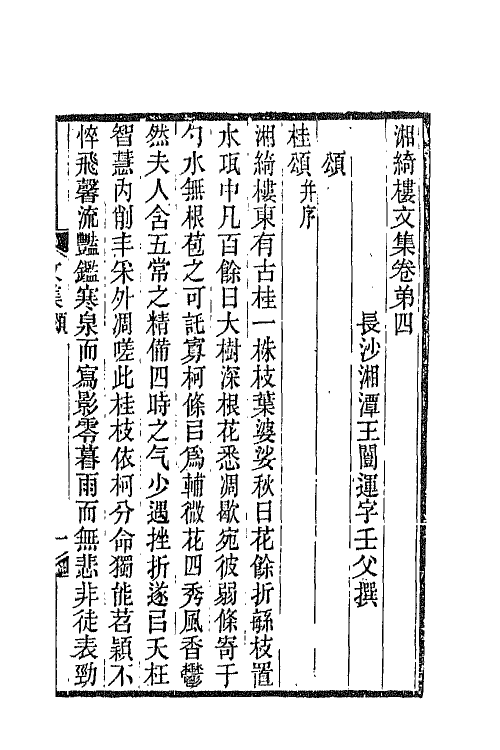 湘綺樓文集卷弟四
長沙湘潭王闓運字壬父撰
頌
桂頌并序
湘綺樓東有古桂一株枝葉婆娑秋日花餘折繇枝置
水瓨中凡百餘日大樹深根花悉凋歇宛彼弱條寄于
勺水無根苞之可託寡柯條㠯爲輔微花四秀風香鬱
然夫人含五常之精備四時之气少遇挫折遂㠯夭枉
智慧內削丰采外凋嗟此桂枝依柯分命獨能苕穎不
悴飛馨流豔鑑寒泉而寫影零暮雨而無悲非徒表勁
文集頌
一